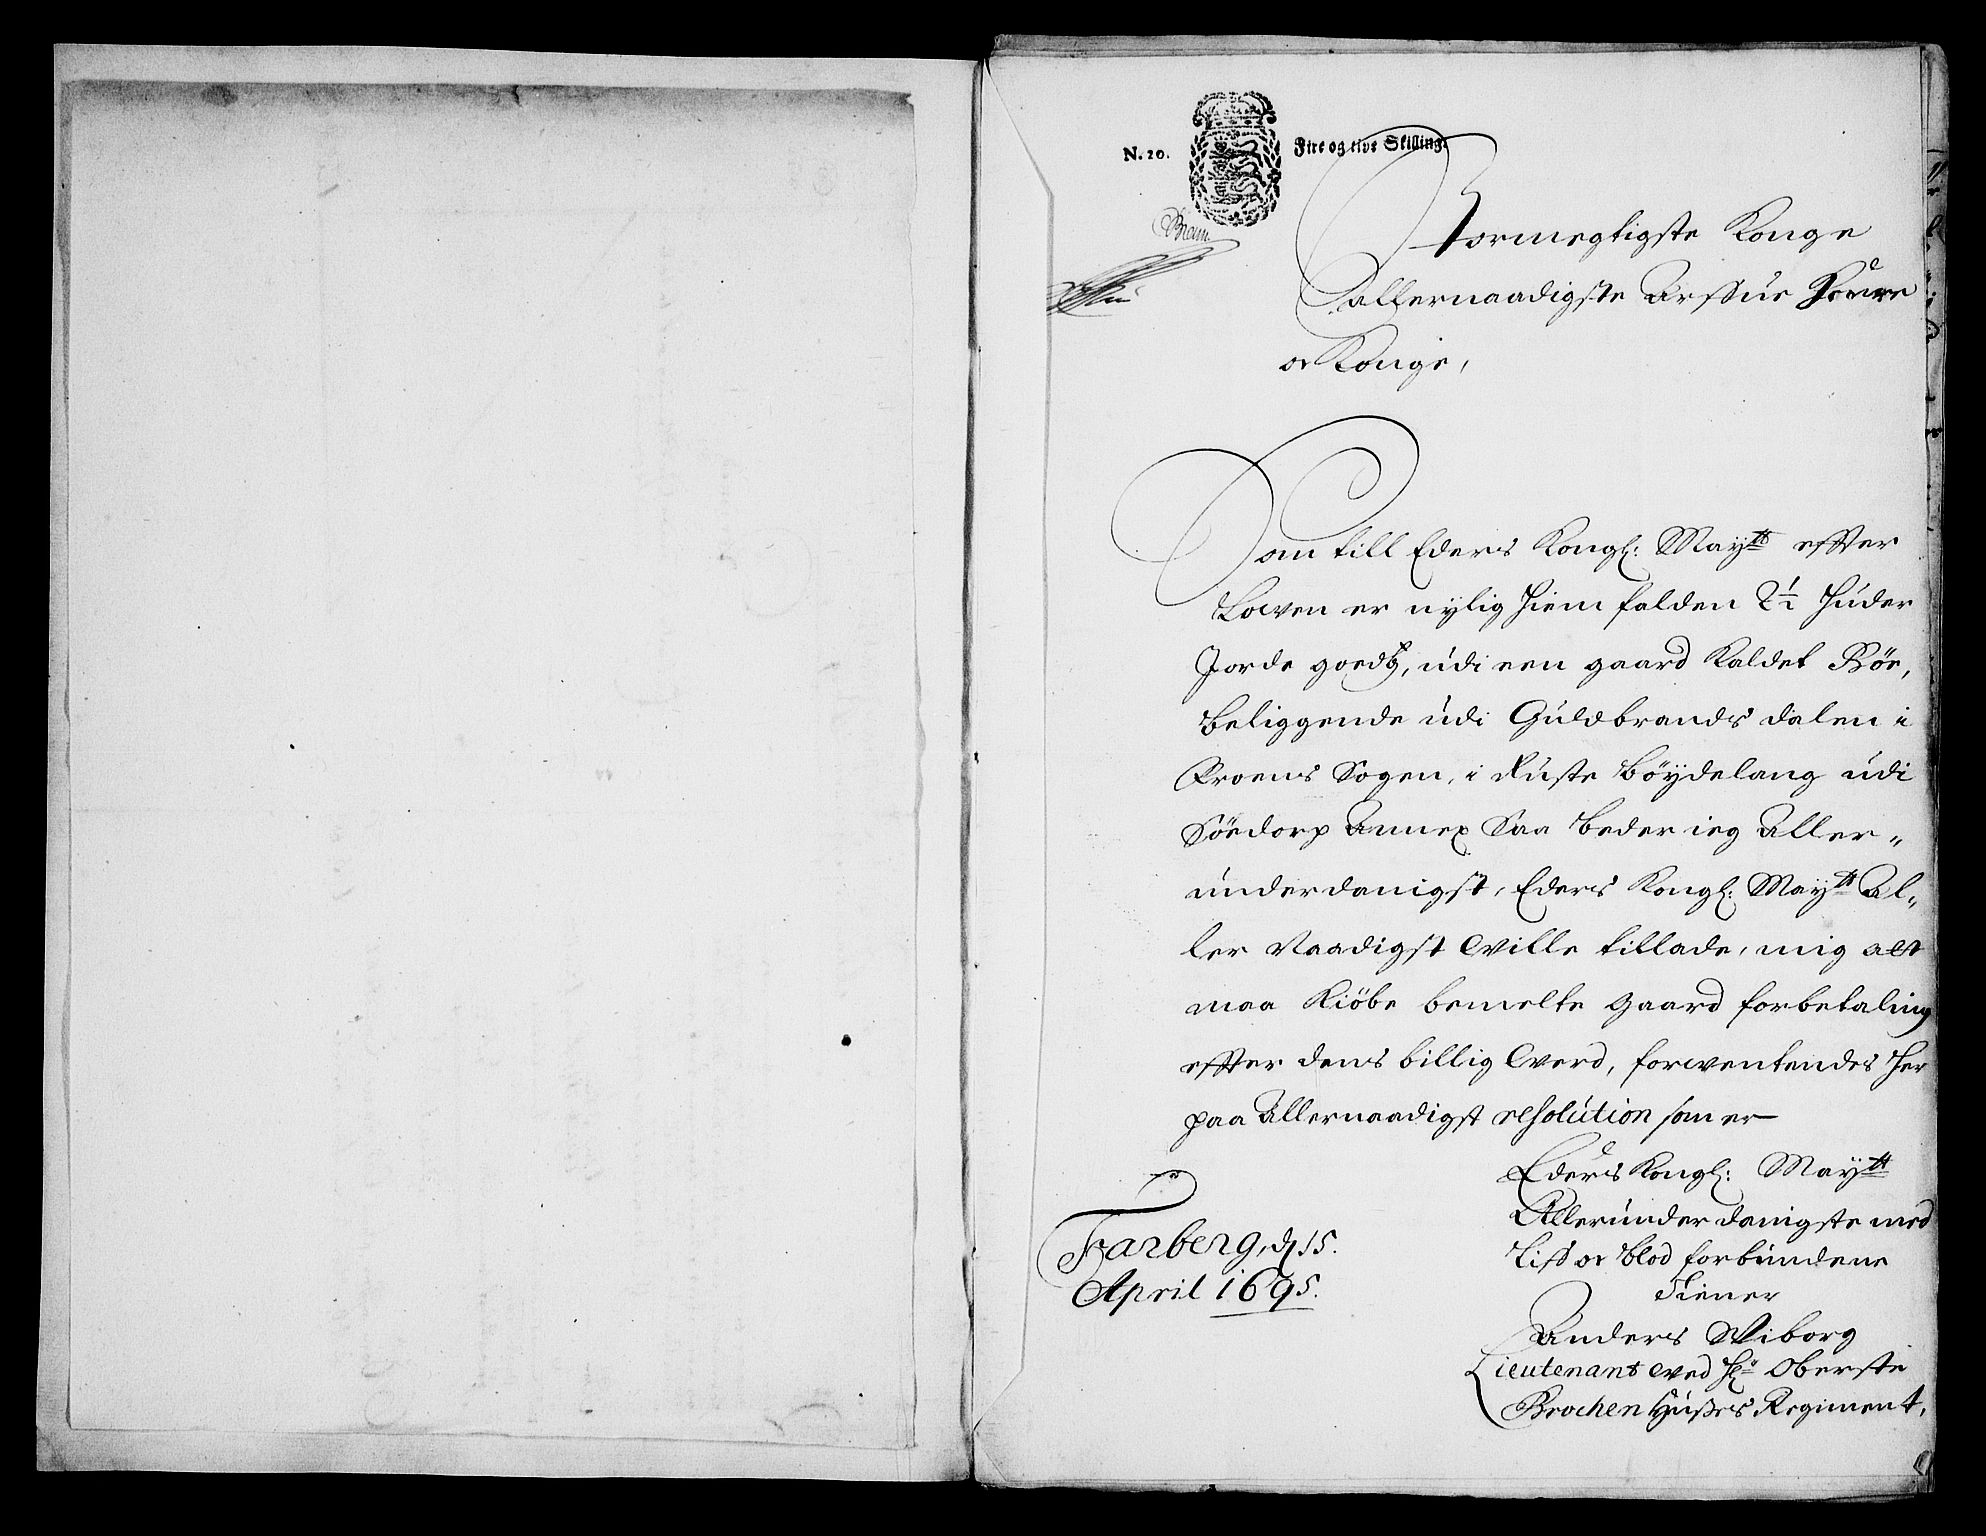 N. 20.
Fire og tive Skilling.
Stormegtigste Konge
allernaadigste Arffue Herre
oc Konge,
Som till Eders Kongl: Maytt effter
Lowen er nylig hiem falden 2½ Huder
Jorde goedtz, udi een gaard kaldet Böe,
beliggende udi Guldbrands dalen i
Froens Sogen, i Ruste böydelaug udi
Söedorp Annex Saa beder ieg Aller„
underdanigst, Eders Kongl: Maytt Al„
ler Naadigst wille tillade, mig att
maa kiöbe bemelte gaard for betaling
effter dens billig werd, forwentendes her
paa Allernaadigst resolution som er
Eders Kongl: Maytt
Allerunder danigste med
Liff oc blod forbundene
Tiener
Anders Wiborg
Lieutenant wed Hr Oberste
Brochen Hußes Regiment,
Faarberg, d 15.
April 1695.